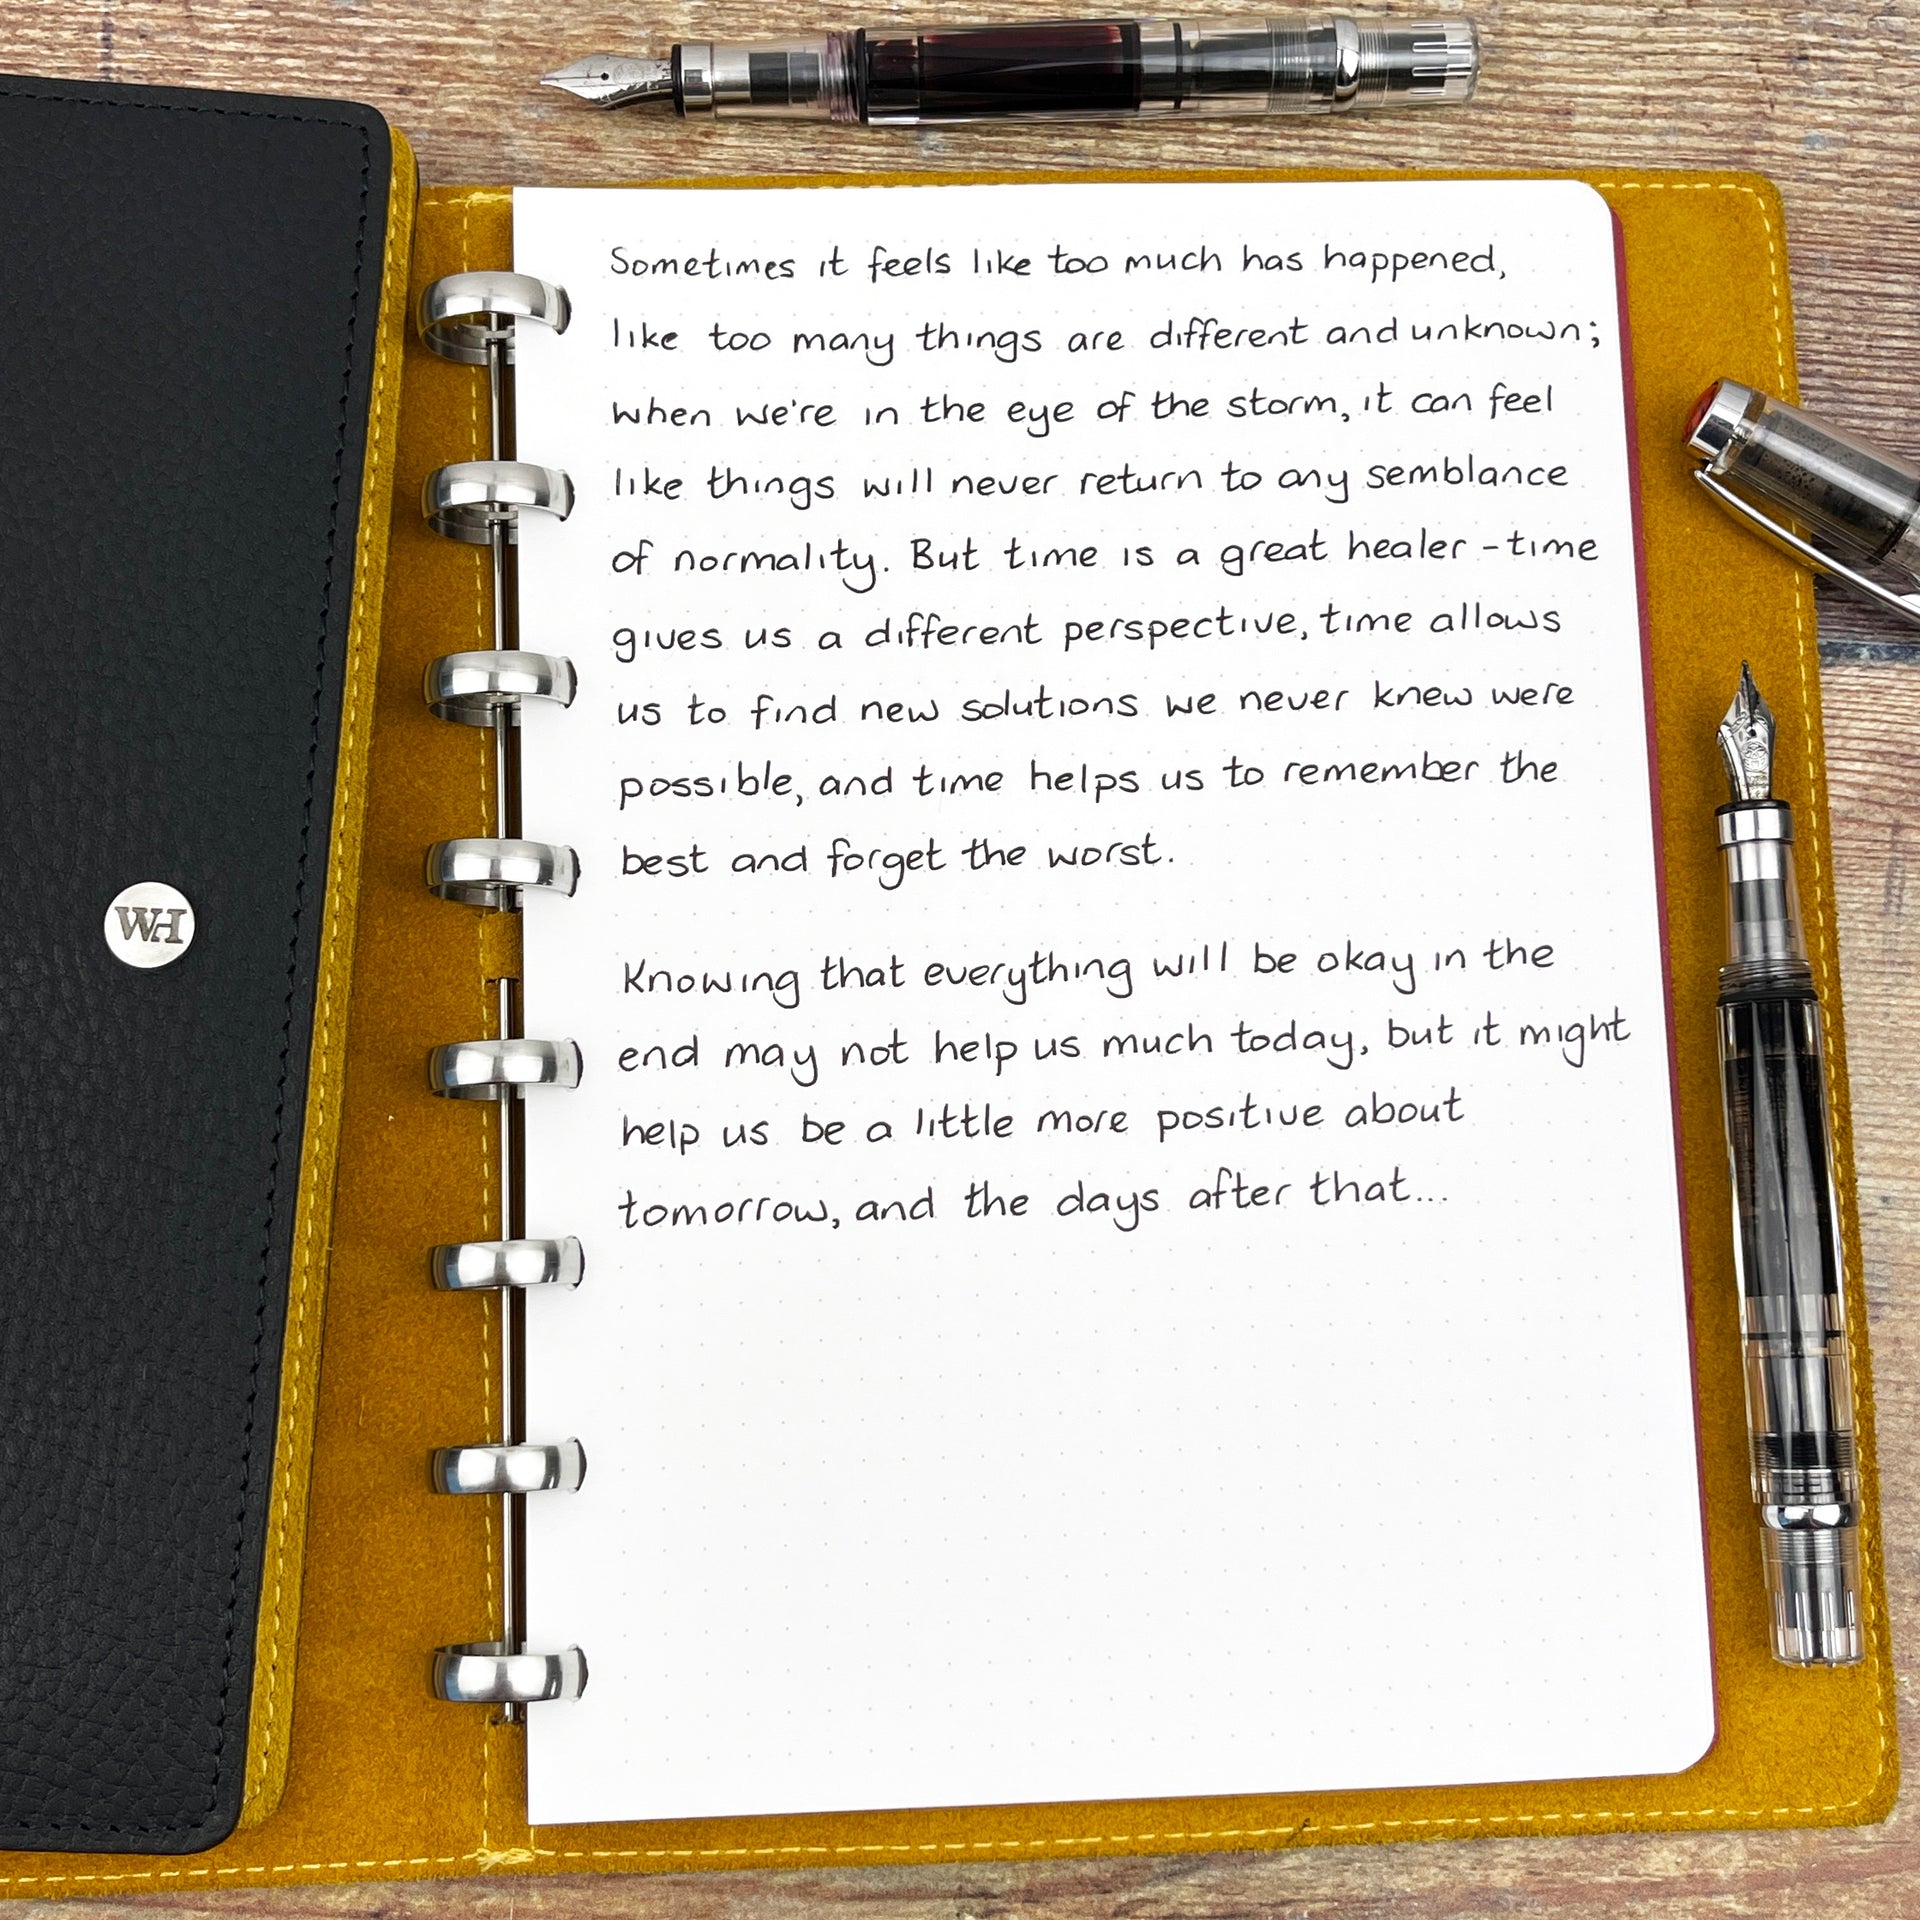 WH
Sometimes it feels like too much has happened,
like too many things are different and unknown;
when we're in the eye of the storm, it can feel
like things will never return to any semblance
of normality. But time is a great healer - time
gives us a different perspective, time allows
us to find new solutions we never knew were
possible, and time helps us to remember the
best and forget the worst.
Knowing that everything will be okay in the
end may not help us much today, but it might
help us be a little more positive about
tomorrow, and the days after that...